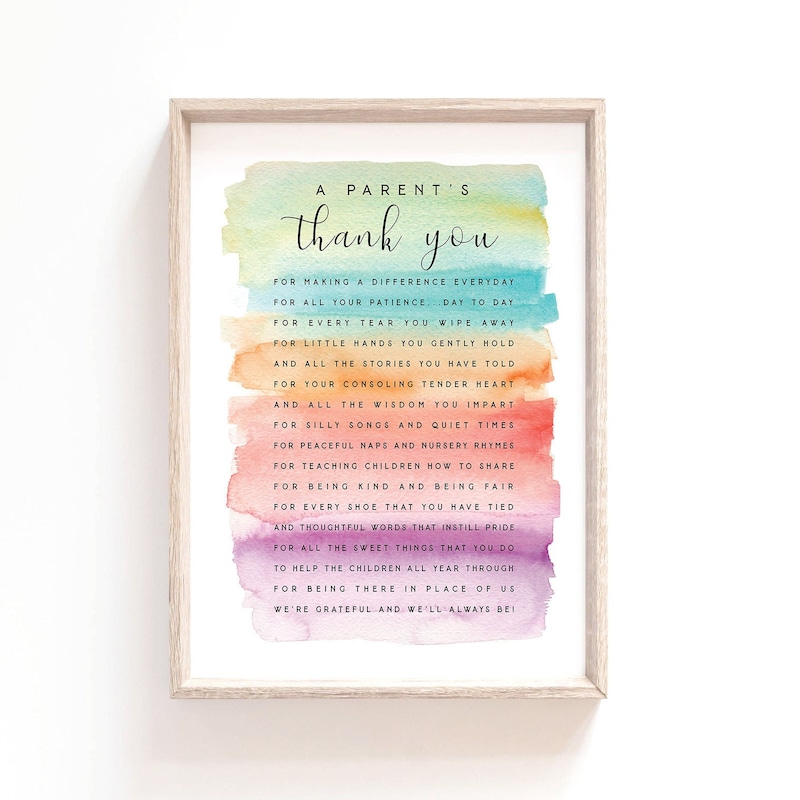 A PARENT'S
thank you
FOR MAKING A DIFFERENCE EVERYDAY
FOR ALL YOUR PATIENCE...DAY TO DAY
FOR EVERY TEAR YOU WIPE AWAY
FOR LITTLE HANDS YOU GENTLY HOLD
AND ALL THE STORIES YOU HAVE TOLD
FOR YOUR CONSOLING TENDER HEART
AND ALL THE WISDOM YOU IMPART
FOR SILLY SONGS AND QUIET TIMES
FOR PEACEFUL NAPS AND NURSERY RHYMES
FOR TEACHING CHILDREN HOW TO SHARE
FOR BEING KIND AND BEING FAIR
FOR EVERY SHOE THAT YOU HAVE TIED
AND THOUGHTFUL WORDS THAT INSTILL PRIDE
FOR ALL THE SWEET THINGS THAT YOU DO
TO HELP THE CHILDREN ALL YEAR THROUGH
FOR BEING THERE IN PLACE OF US
WE'RE GRATEFUL AND WE'LL ALWAYS BE!